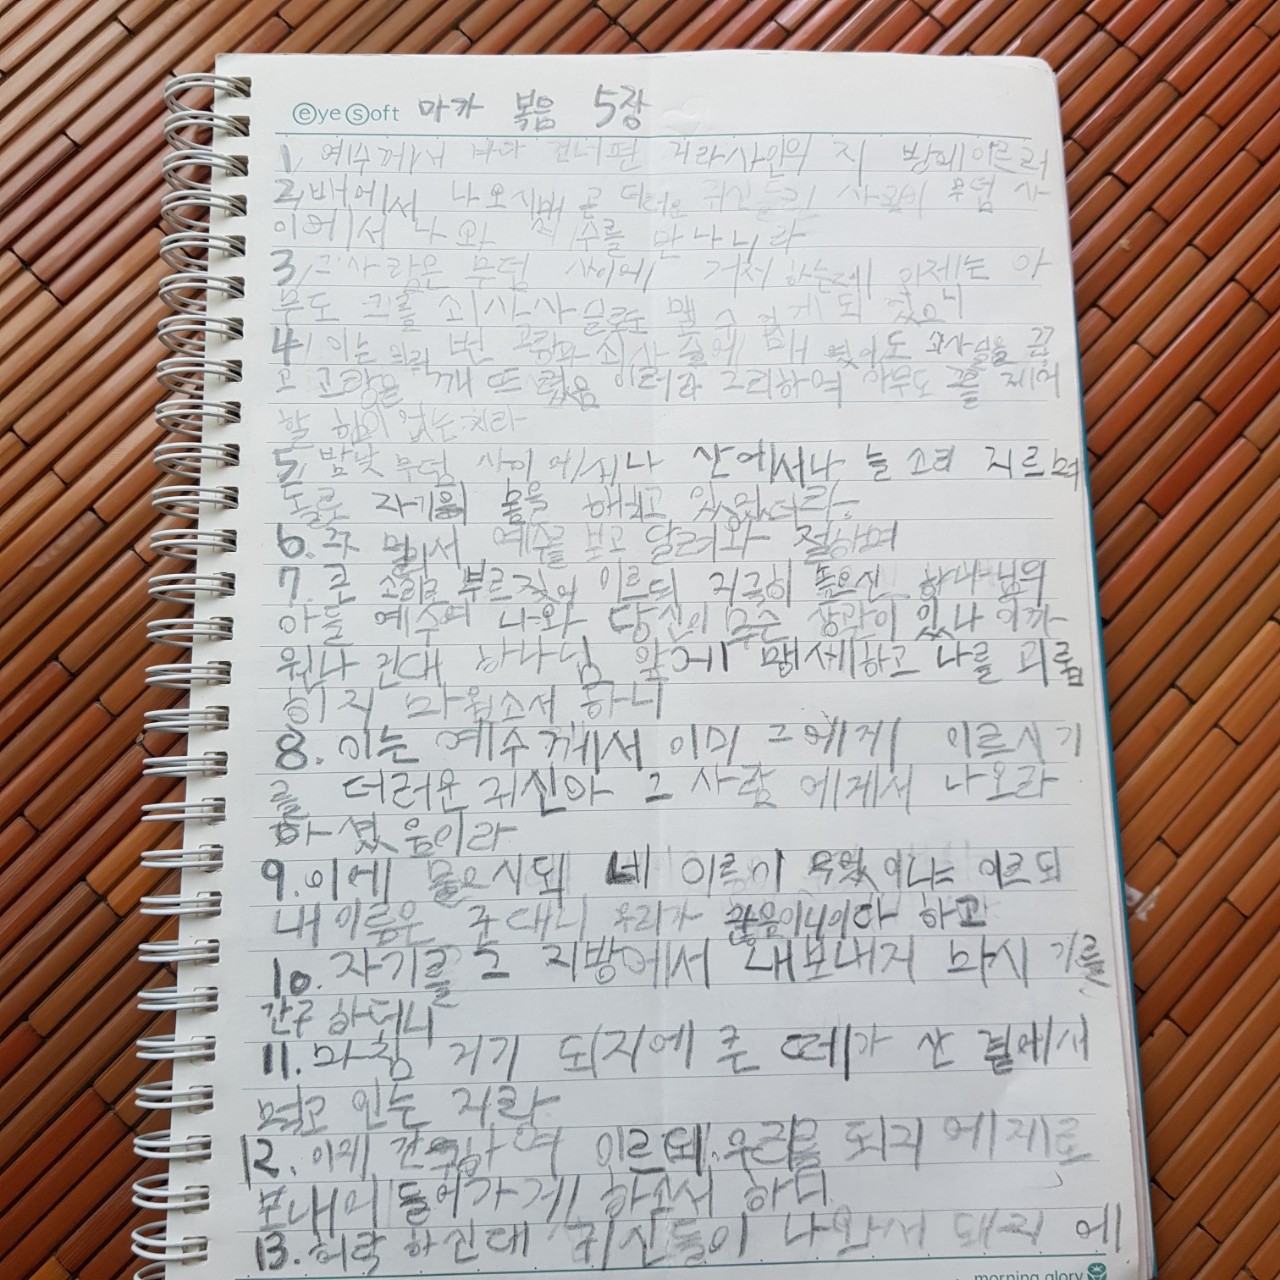 eye soft 마카 복음 5장
1, 예수께서 바다 건너편 거라사인의 지 방에이르러
2, 배에서 나오시매 곧 더러운 귀신들린 사람이 무덤 사
이에서 나와 예수를 만나니라
3, 그사람은 무덤 사이에 거처 하는데 이제는 아
무도 그를 쇠사사슬로도 맬 수 없게 되 었으니
4, 이는 여러 번 고랑과 쇠사 슬에 매 였어도 쇠사슬을 끊
고 고랑을 깨 뜨 렸음 이러라 그리하여 아무도 그를 제어
할 힘이 없는지라
5, 밤낮 무덤 사이 에서나 산에서나 늘 소리 지르며
돌로 자기의 몸을 해치고 있었더라
6. 그 멀리서 예수를 보고 달려와 절하며
7. 큰 소리로 부르짖어 이르되 지극히 높으신 하나님의
아들 예수여 나와 당신이 무슨 상관이 있나 이까
원나 건대 하나님 앞에 맹세하고 나를 괴롭
히지 마옵소서 하니
8. 이는 예수께서 이미 그에게 이르시기
를 더러운귀신아 그 사람 에게서 나오라
하 셨 음이라
9. 이에 물으시되 네 이르이 무엇이냐 이르되
내 이름은 군대니 우리가 많음이니이다 하고
10. 자기를 그 지방에서 내보내지 마시 기를
간구 하더니
11. 마침 거기 되지에 큰 떼가 산 곁에서
먹고 인는 지라
12. 이제 간구하여 이르되 우리를 되지 에게로
보내어 들어가게 하소서 하니
13. 허락 하신대 귀신들이 나와서 돼지 에
morning glory